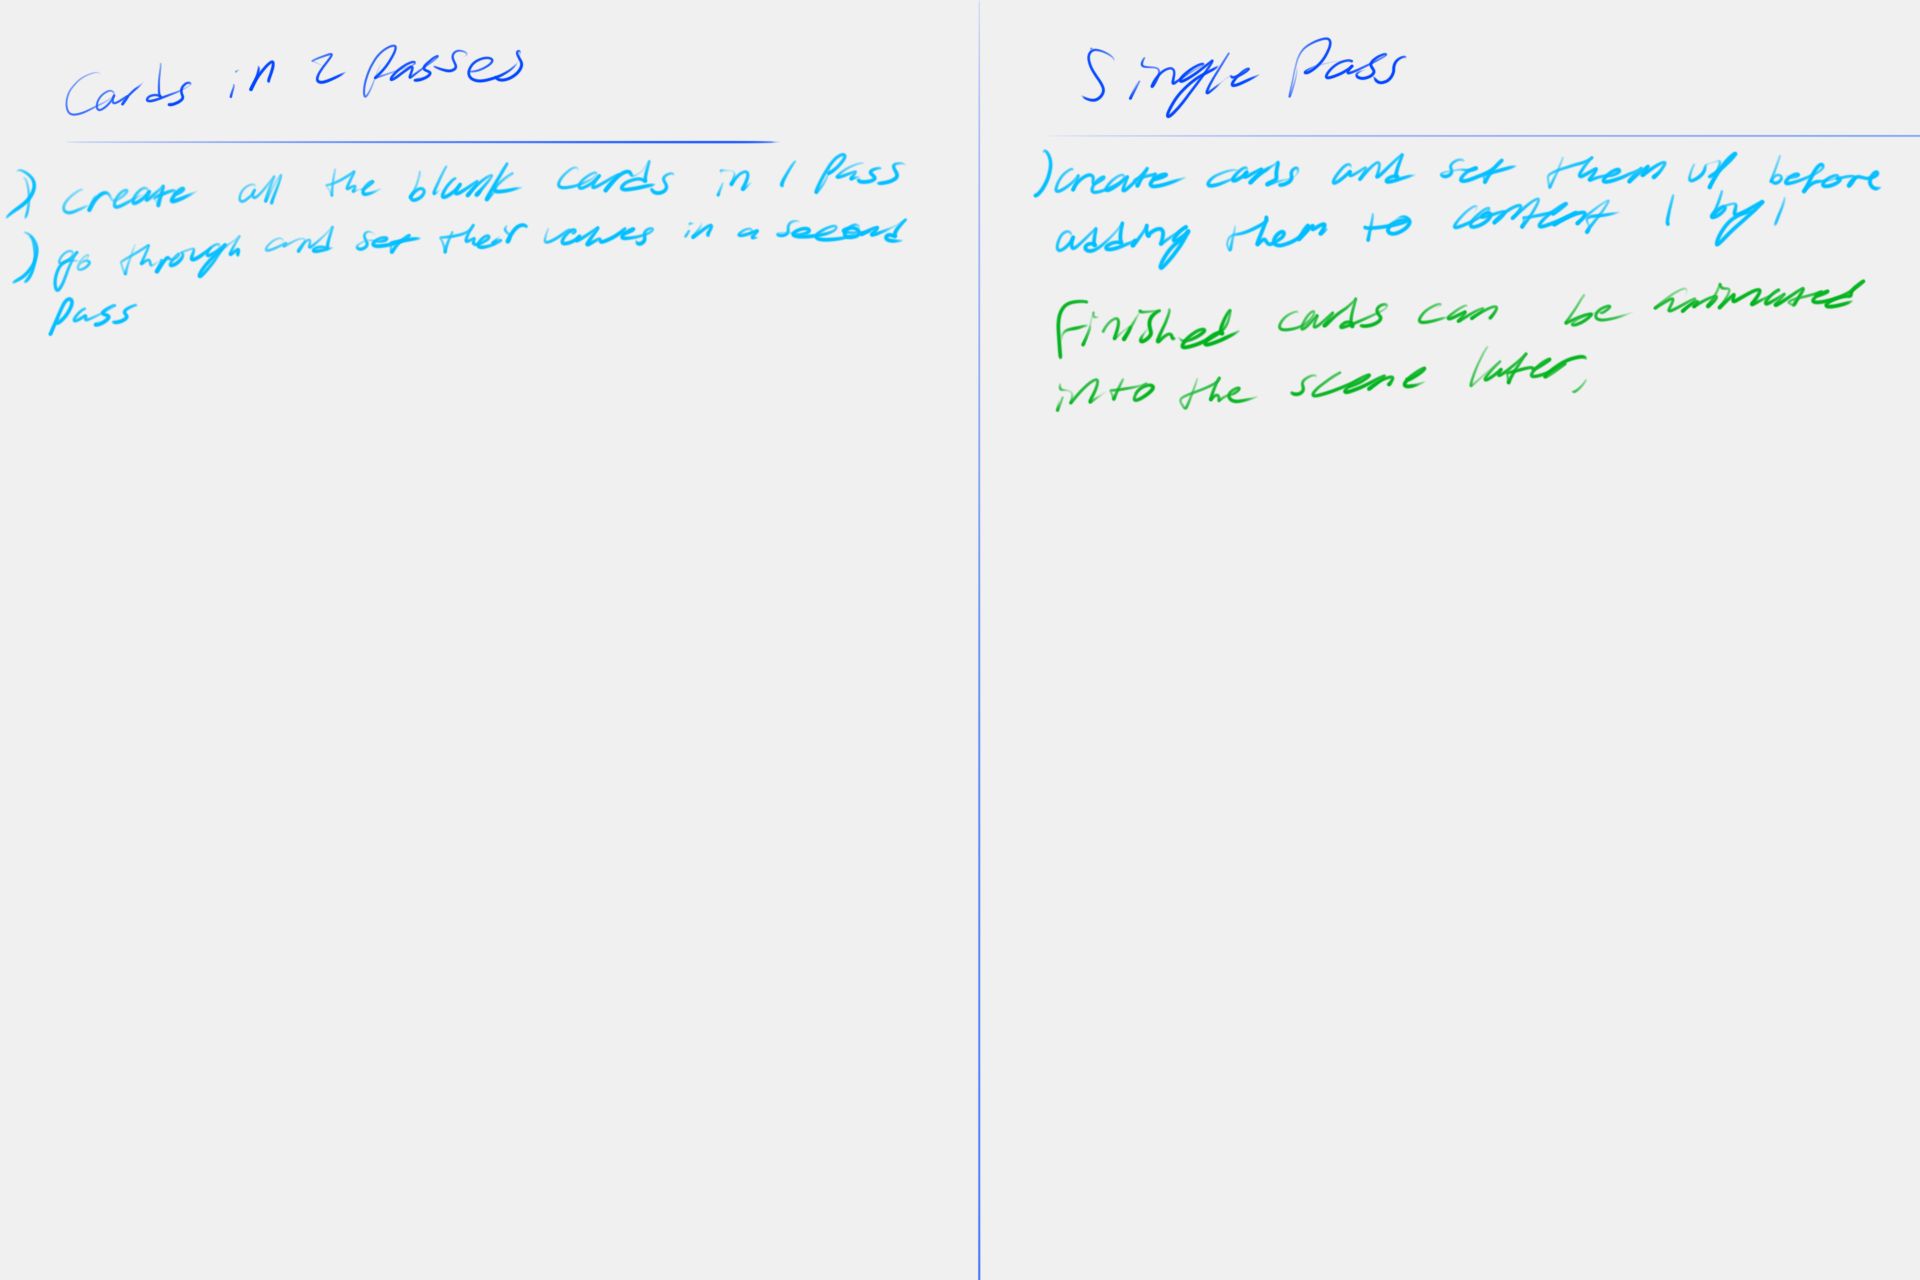 Cards in 2 passes
) create all the blank cards in 1 pass
) go through and set their values in a second
pass
Single Pass
) create cards and set them up before
adding them to content 1 by 1
Finished cards can be animated
into the scene later,